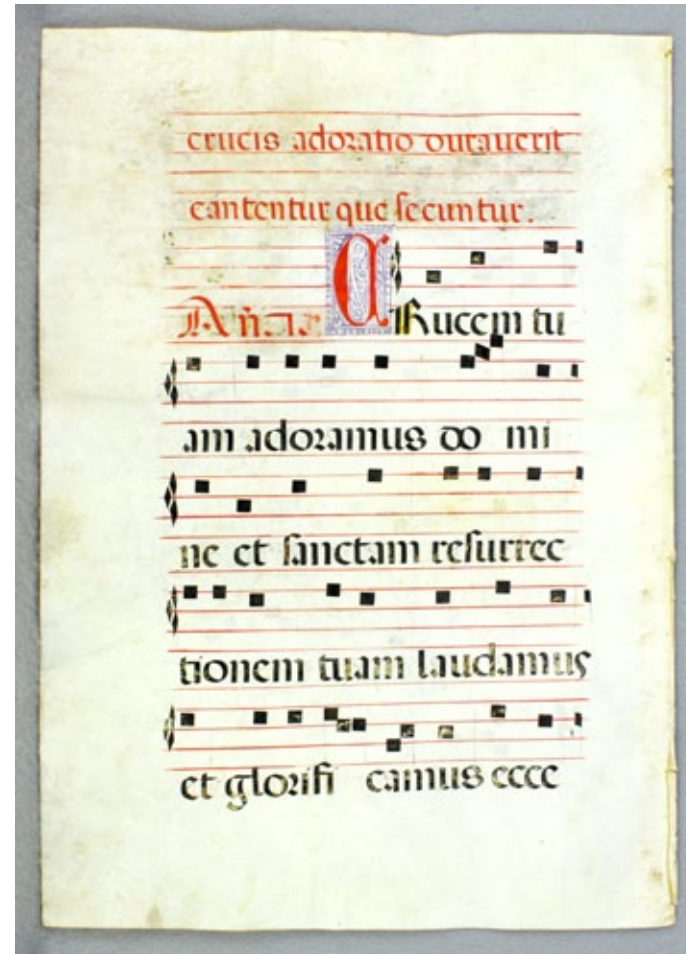 crucis adoratio duraverit
cantentur que secuntur.
Añ. CRucem tu
am adoramus do mi
ne et sanctam resurrec
tionem tuam laudamus
et glorifi camus ecce